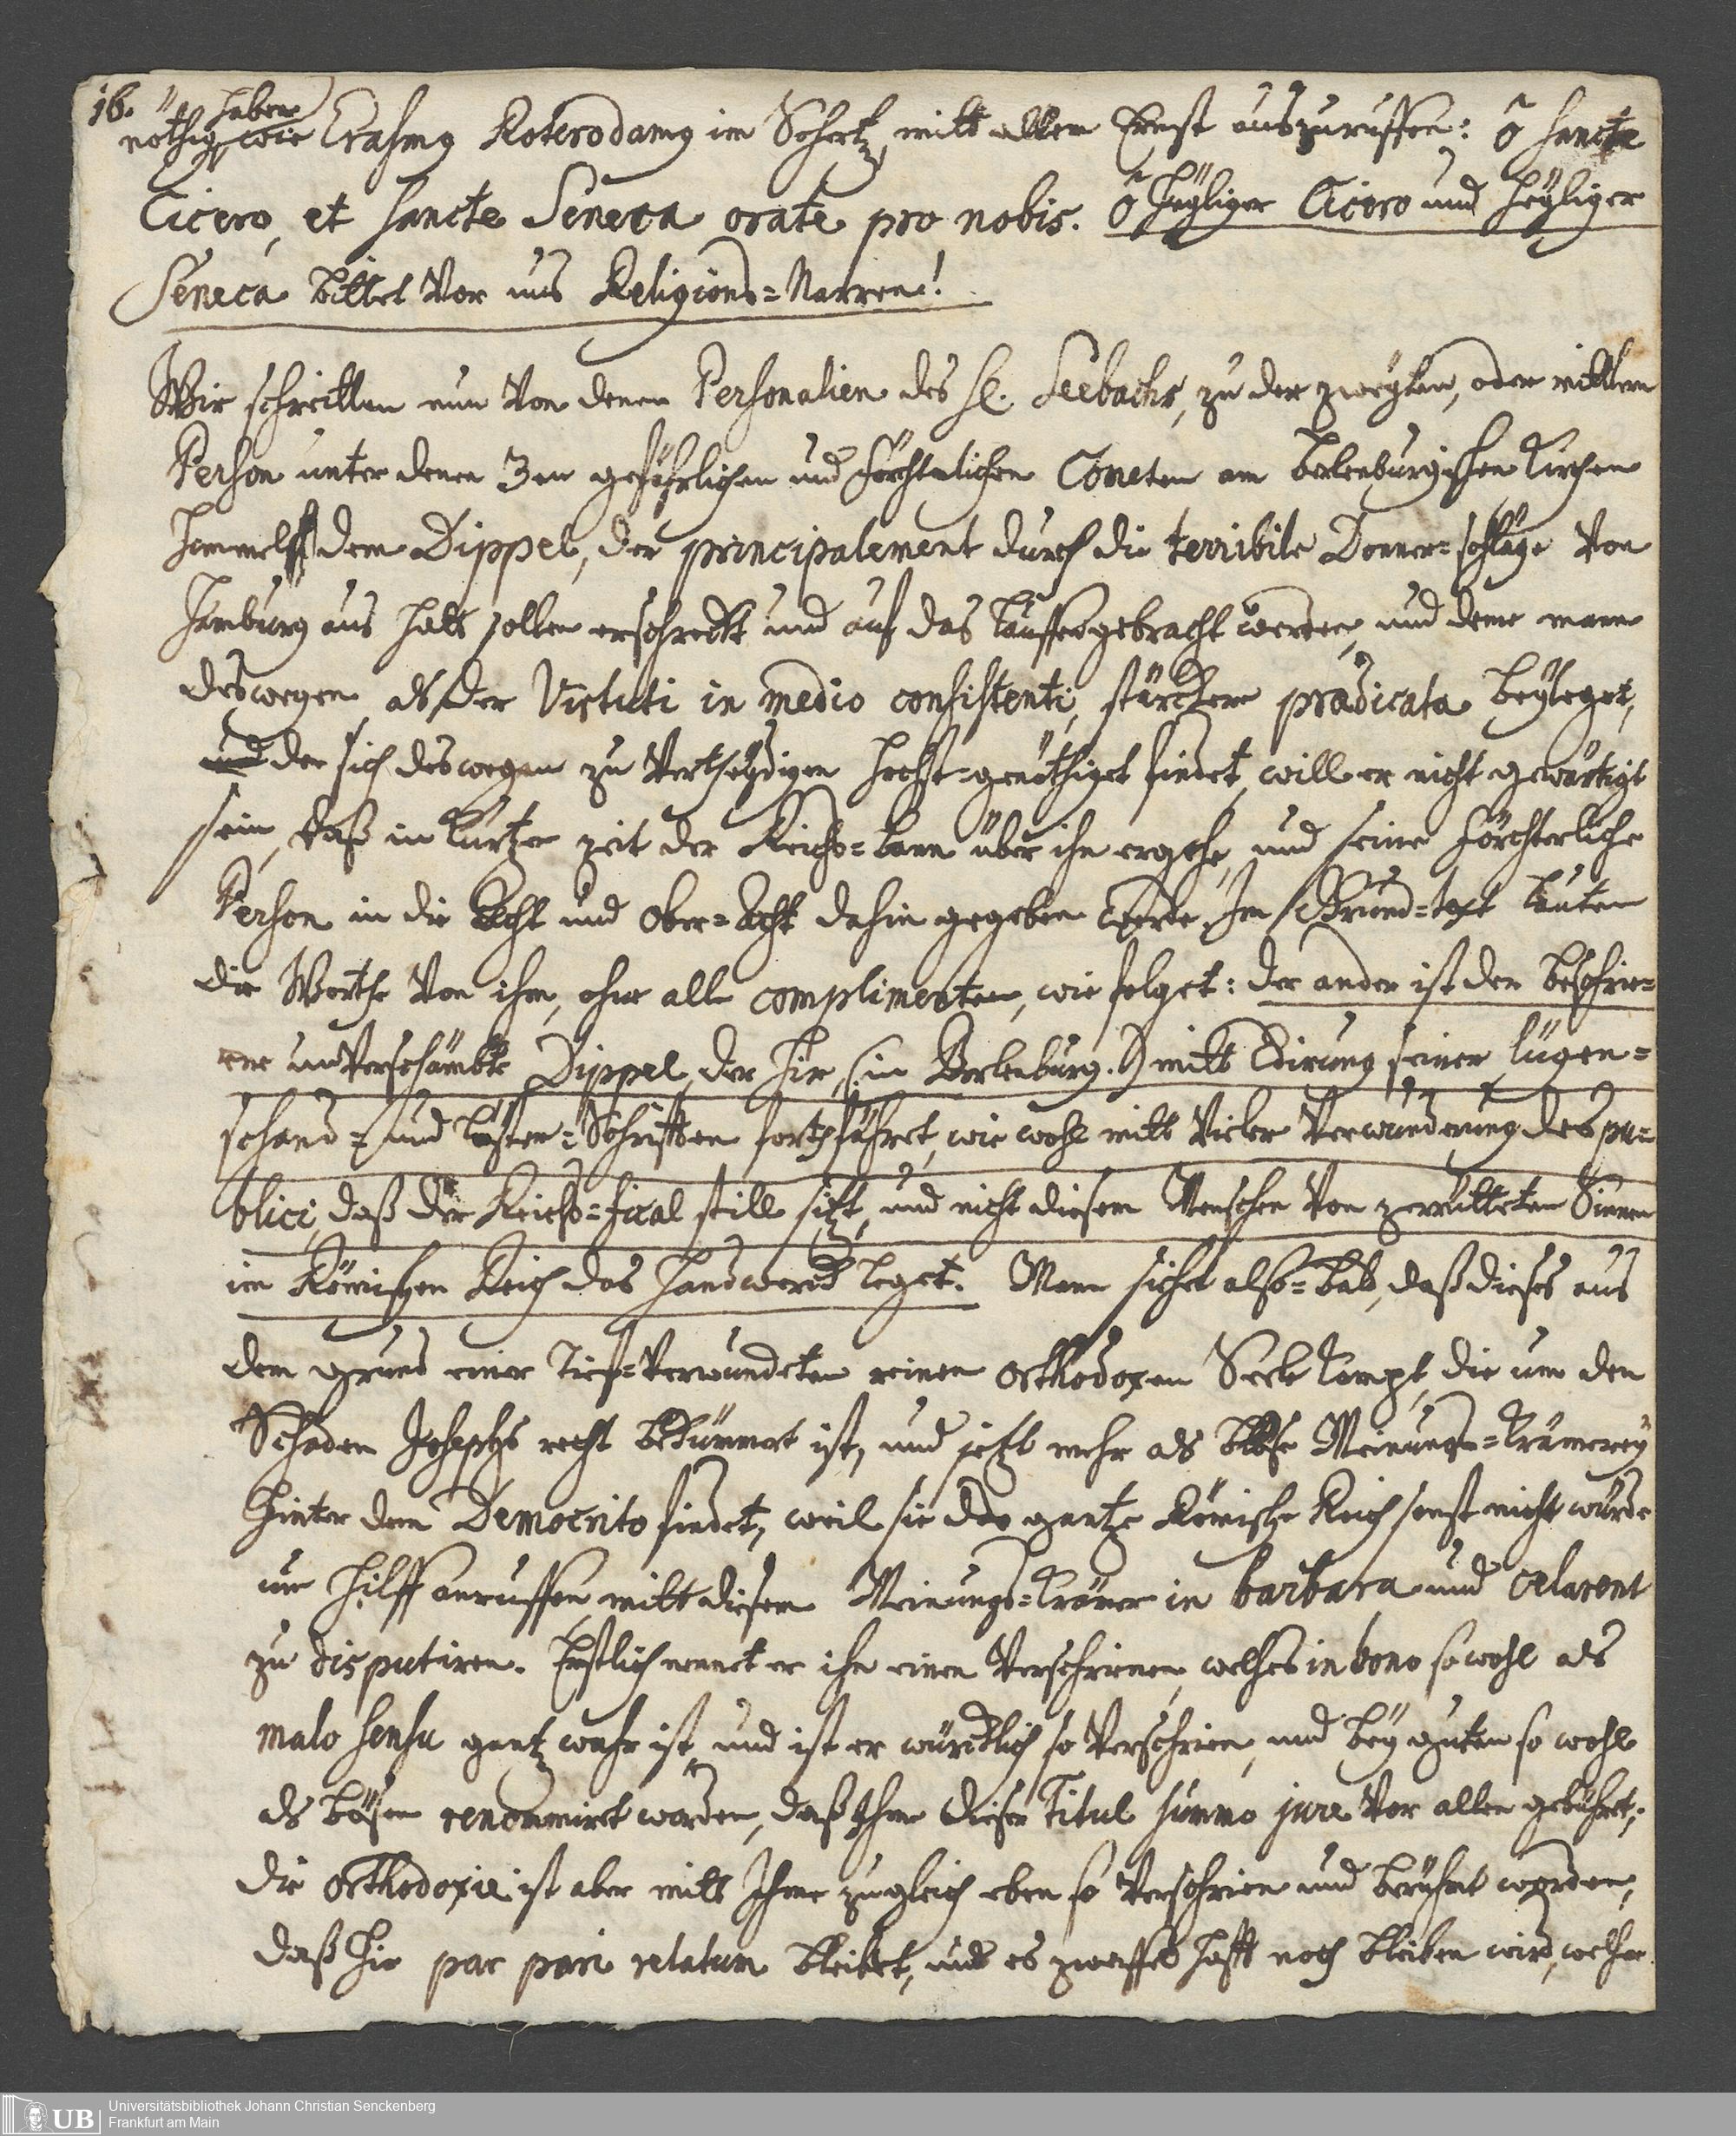 16.
haben
nöthig, wie Erasmus Roterodamus im Schertz, mitt allem Ernst auszuruffen: ô sancte
Cicero, et sancte Seneca orate pro nobis. ô heyliger Cicero und heyliger
Seneca bittet vor uns Religions=Narren!
Wir schreitten nun von denen Personalien des H. Seebachs, zu der zweyten, oder mittlern
Person unter denen 3en gefährlichen und förchterlichen Cometen am Berlenburgischen Kirchen
Himmel, dem Dippel, der principalement durch die terribile Donner=schläge von
Homburg aus hatt sollen erschreckt und auf das lauffen gebracht werden, und deme mann
deswegen, als der Virtuti in medio consistenti, stärckere prædicata beyleget,
und der sich deswegen zu vertheydigen höchst=genöthiget findet, will er nicht gewärtigt
sein, daß in kurtzer zeit der Reichs=bann über ihn ergehe, und seine förchterliche
Person in die Acht und Ober=Acht dahin gegeben werde. Im Grund=text lauten
die Worthe von ihm, ohne alle complimenten, wie folget: der ander ist der beschrie=
ene unverschämbte Dippel, der hie, (in Berlenburg.) mitt Edirung seiner lügen=
schand= und läster=Schrifften fortfähret, wie wohl mitt vieler verwunderung des pu=
blici, daß der Reichs=fiscal still sitzt, und nicht diesem Menschen von zerrütteten Sinnen
im Römischen Reich das handwerck leget. Mann siehet also=bald, daß dieses aus
dem grund einer Tief=verwundeten reinen orthodoxen Seele kompt, die um den
Schaden Josephs recht bekümmert ist, und jetzt mehr als blose Meinungs=Krämerey
hinter dem Democrito findet, weil sie das gantze Römische Reich sonst nicht würde
um hilff anruffen, mitt diesem Meinungs=krämer in barbara und celarent
zu disputiren. Erstlich nennet er ihn einen verschrienen, welches in bono so wohl als
malo sensu gantz wahr ist, und ist er würcklich so verschrien, und bey guten so wohl
als bösen renommirt worden, daß Ihme dieser Titul summo jure vor allen gebühret;
die orthodoxie ist aber mitt Ihme zugleich eben so verschrien und berühmt worden,
daß hie par pari relatum bleibet, und es zweiffelhafft noch bleiben wird, welcher
Universitätsbibliothek Johann Christian Senckenberg
Frankfurt am Main
UB